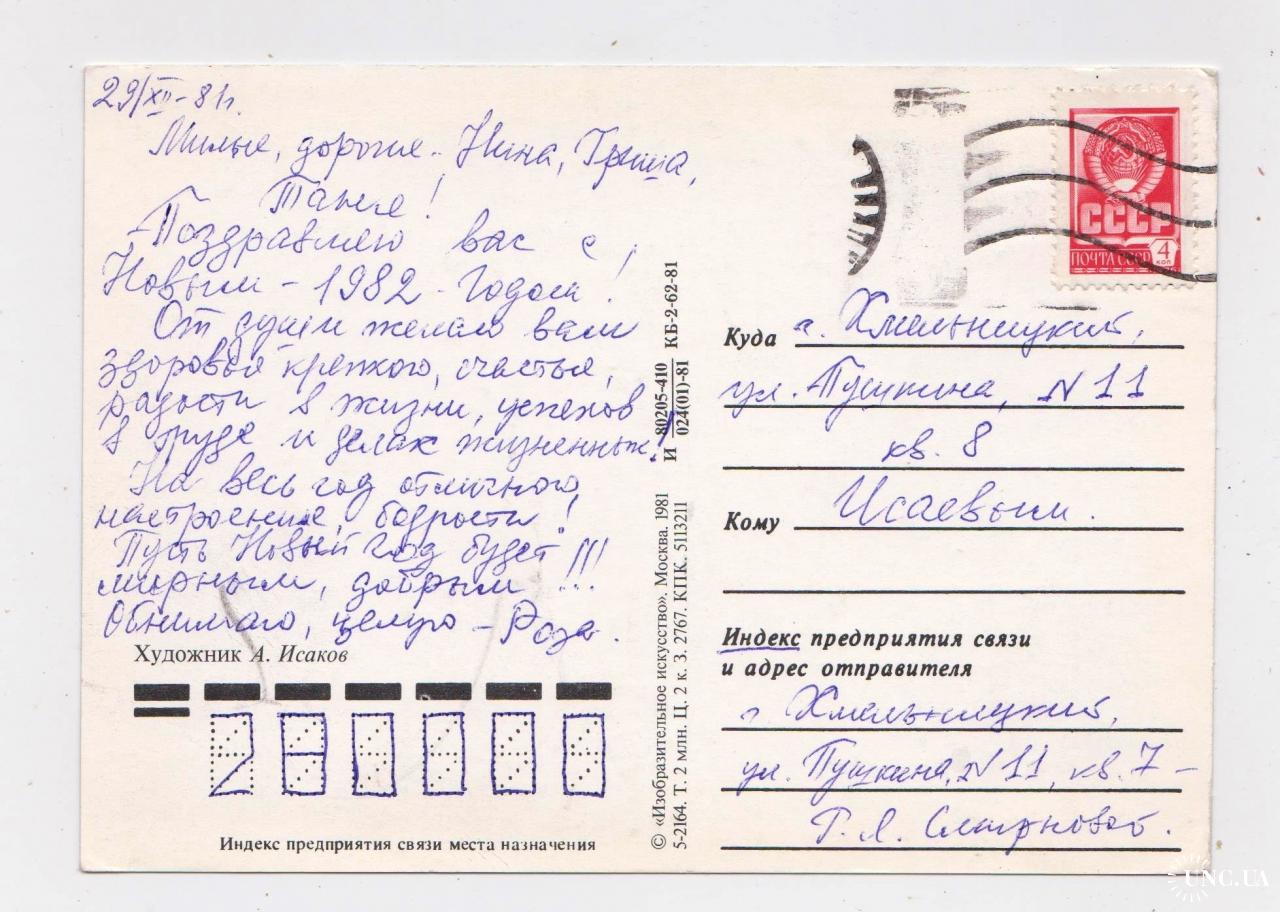 29/XII-81г.
Милые, дорогие. Нина, Гриша,
Таня!
Поздравляю вас с
Новым - 1982 - Годом!
От души желаю вам
здоровья крепкого, счастья,
радости в жизни, успехов
в труде и делах жизненных!
На весь год отличного
настроение, бодрости!
Пусть Новый год будет
мирным, добрым!!!
Обнимаю, целую - Роза.
Художник А. Исаков
280000
Индекс предприятия связи места назначения
© «Изобразительное искусство». Москва. 1981
5-2164. Т. 2 млн. Ц. 2 к. З. 2767. КПК. 5113211
И 80205-410 КБ-2-62-81
024(01)-81
СССР
ПОЧТА СССР 4 коп
Куда г. Хмельницкий,
ул. Пушкина, N 11
кв. 8
Кому Исаевым.
Индекс предприятия связи
и адрес отправителя
г Хмельницкий,
ул. Пушкина, N 11, кв. 7 -
Г. Л. Смирновой.
UNC.UA